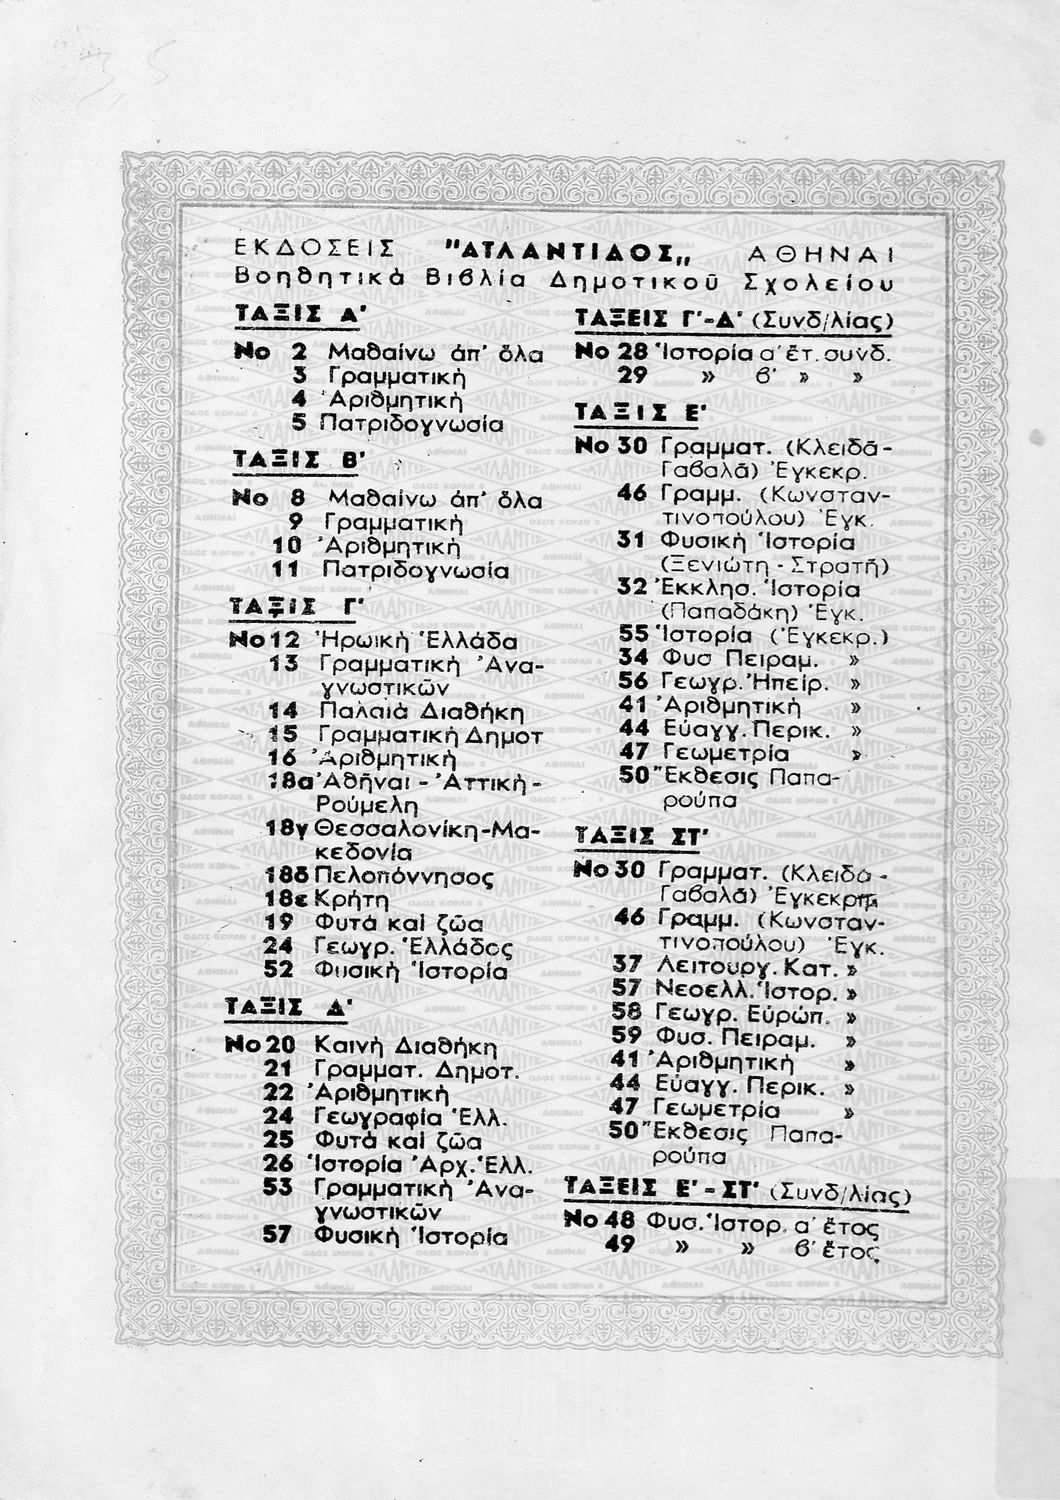 ΕΚΔΟΣΕΙΣ "ΑΤΛΑΝΤΙΔΟΣ„ ΑΘΗΝΑΙ
Βοηθητικά Βιβλία Δημοτικοῦ Σχολείου
ΤΑΞΙΣ Α'
Νο 2 Μαθαίνω ἀπ' ὅλα
3 Γραμματική
4 Ἀριθμητική
5 Πατριδογνωσία
ΤΑΞΙΣ Β'
Νο 8 Μαθαίνω ἀπ' ὅλα
9 Γραμματική
10 Ἀριθμητική
11 Πατριδογνωσία
ΤΑΞΙΣ Γ'
Νο 12 Ἡρωική Ἑλλάδα
13 Γραμματική Ἀνα-
γνωστικῶν
14 Παλαιά Διαθήκη
15 Γραμματική Δημοτ
16 Ἀριθμητική
18α Ἀθῆναι - Ἀττική -
Ρούμελη
18γ Θεσσαλονίκη-Μα-
κεδονία
18δ Πελοπόννησος
18ε Κρήτη
19 Φυτά καί ζῶα
24 Γεωγρ. Ἑλλάδος
52 Φυσική Ἱστορία
ΤΑΞΙΣ Δ'
Νο 20 Καινή Διαθήκη
21 Γραμματ. Δημοτ.
22 Ἀριθμητική
24 Γεωγραφία Ἑλλ.
25 Φυτά καί ζῶα
26 Ἱστορία Ἀρχ. Ἑλλ.
53 Γραμματική Ἀνα-
γνωστικῶν
57 Φυσική Ἱστορία
ΤΑΞΕΙΣ Γ'-Δ' (Συνδ/λίας)
Νο 28 Ἱστορία α' ἔτ. συνδ.
29 » β' » »
ΤΑΞΙΣ Ε'
Νο 30 Γραμματ. (Κλειδᾶ-
Γαβαλᾶ) Ἐγκεκρ.
46 Γραμμ. (Κωνσταν-
τινοπούλου) Ἐγκ.
31 Φυσική Ἱστορία
(Ξενιώτη - Στρατῆ)
32 Ἐκκλησ. Ἱστορία
(Παπαδάκη) Ἐγκ.
55 Ἱστορία (Ἐγκεκρ.)
34 Φυσ Πειραμ. »
56 Γεωγρ. Ἠπείρ. »
41 Ἀριθμητική »
44 Εὐαγγ. Περικ. »
47 Γεωμετρία »
50 Ἔκθεσις Παπα-
ρούπα
ΤΑΞΙΣ ΣΤ'
Νο 30 Γραμματ. (Κλειδᾶ -
Γαβαλᾶ) Ἐγκεκρ.
46 Γραμμ. (Κωνσταν-
τινοπούλου) Ἐγκ.
37 Λειτουργ. Κατ. »
57 Νεοελλ. Ἱστορ. »
58 Γεωγρ. Εὐρώπ. »
59 Φυσ. Πειραμ. »
41 Ἀριθμητική »
44 Εὐαγγ. Περικ. »
47 Γεωμετρία »
50 Ἔκθεσις Παπα-
ρούπα
ΤΑΞΕΙΣ Ε' - ΣΤ' (Συνδ/λίας)
Νο 48 Φυσ. Ἱστορ. α' ἔτος
49 » » β' ἔτος